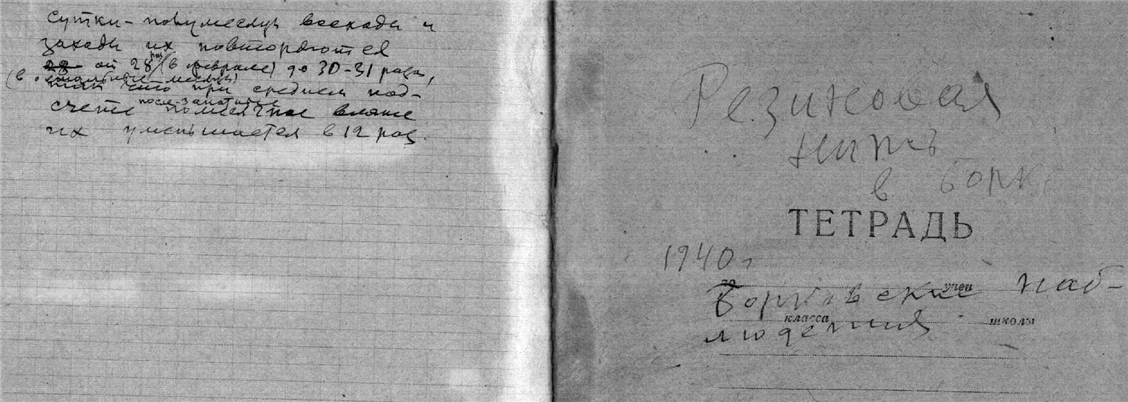 сутки - полумесяца восходы и
заходы их повторяются
от 28 раз (в феврале) до 30-31 раза,
(в остальные месяцы)
так что при среднем под-
счете помесячное влияние
их уменьшается в 12 раз.
Резиновая
нить
в Борк
ТЕТРАДЬ
1940 г
учен
Борковские наб-
класса школы
людения